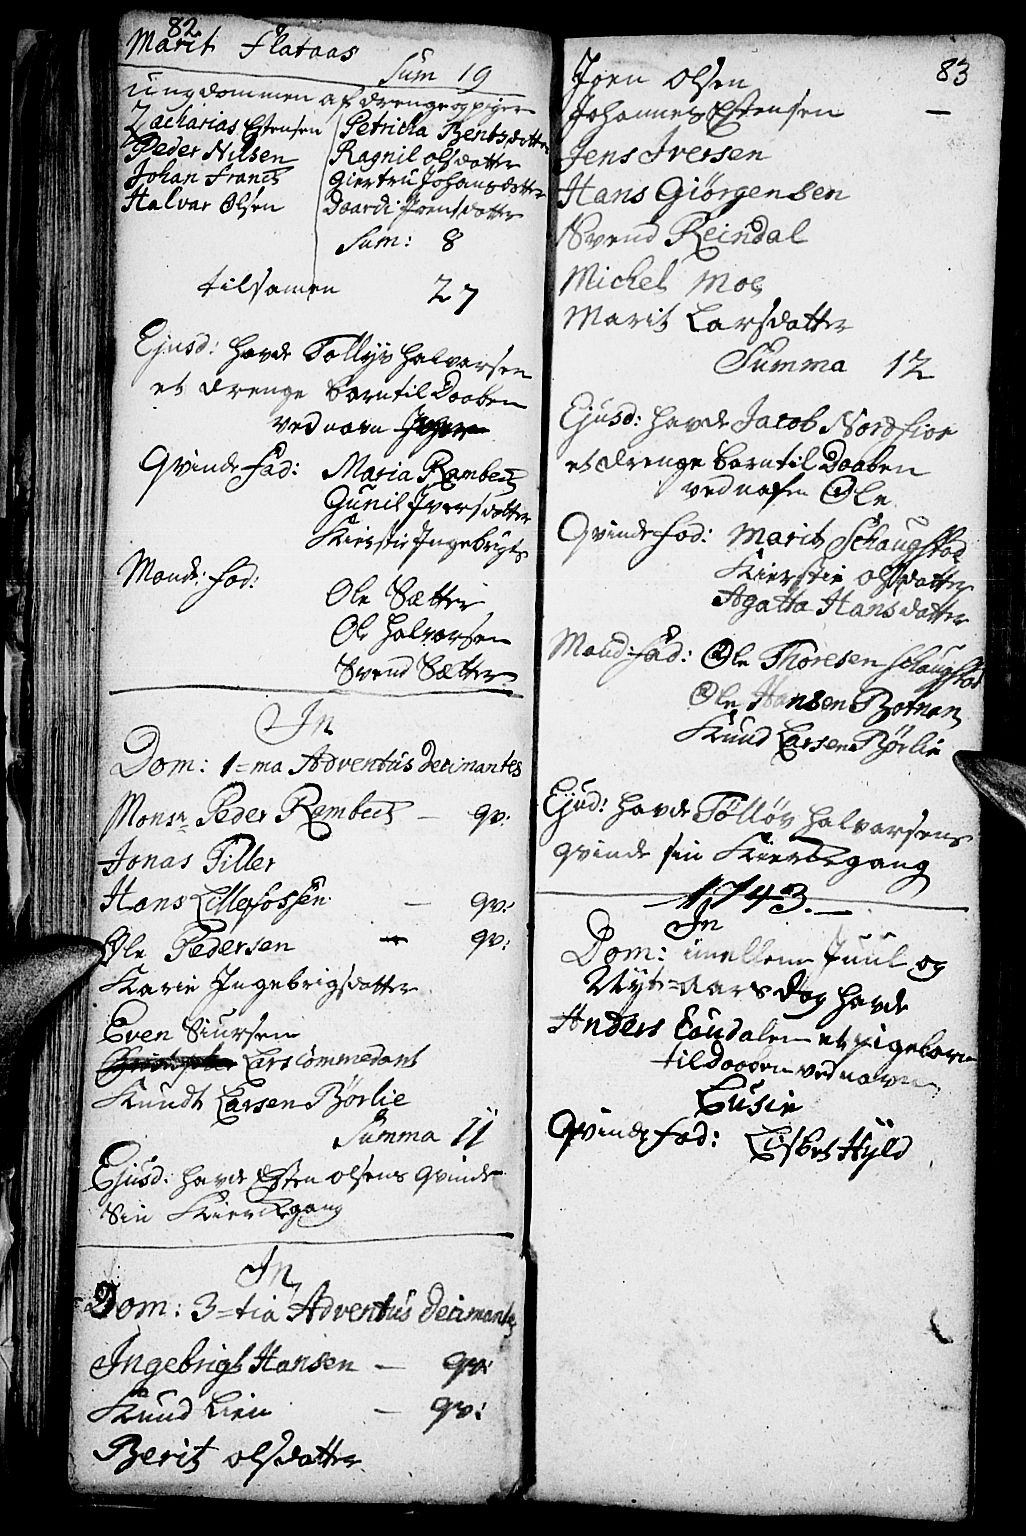 82
Marit Flataas
Sum 19
ungdommen af drenge og piger
Zacharias Estensen Petricka Bentsdatter
Peder Nilsen Ragnil olsdatter
Johan Frants Giertru Johansdatter
Halvar Olsen Daardi Joensdatter
Sum: 8
tilsamen 27
Ejusd: havde Tollyv halvorsen
et drenge barn til Daaben
ved navn
Qvinde fad: Maria Rambech
Gunil Iversdatter
Kierstie Ingebrigts
Mand: fad:
Ole Sætter
Ole halvorsen
Svend Sætter
In
Dom: 1=ma Adventus Decimantes
Monsr Peder Rambech — qv:
Jonas Tiller
Hans Lillefossen — qv:
Ole Pedersen — qv:
Karie Ingebrigsdatter
Even Siursen
Lars commedant
Knudt Larsen Børlie
Summa 11
Ejusd: havde Esten olsens qvinde
Sin Kierkegang
In
Dom: 3=tia Adventus Decimantes
Ingebrigt Hansen — qv:
Knud Lien — qv:
Berit olsdatter
83
Joen Olsen
Johannes Estensen —
Jens Iversen
Hans Giørgensen
Svend Reindal
Michel Moe
Marit Larsdatter
Summa 12
Ejusd: havde Jacob Nordfior
et drenge barn til Daaben
ved nafn Ole
Qvinde fad: Marit Schaugstad
Kierstie olsdatter
Agatta Hansdatter
Mand: fad: Ole Thoresen Schaugstad
Ole Hansen Botnan
Knud Larsen Børlie
Ejud: havde Tølløv halvarsens
qvinde sin Kierkegang
1743.
In
Dom: imellem Juul og
Nyt=aarsdag havde
Anders Eaudalen et pigebarn
til daaben ved navn
Lusie
Qvinde fad: Lisbet Hyld